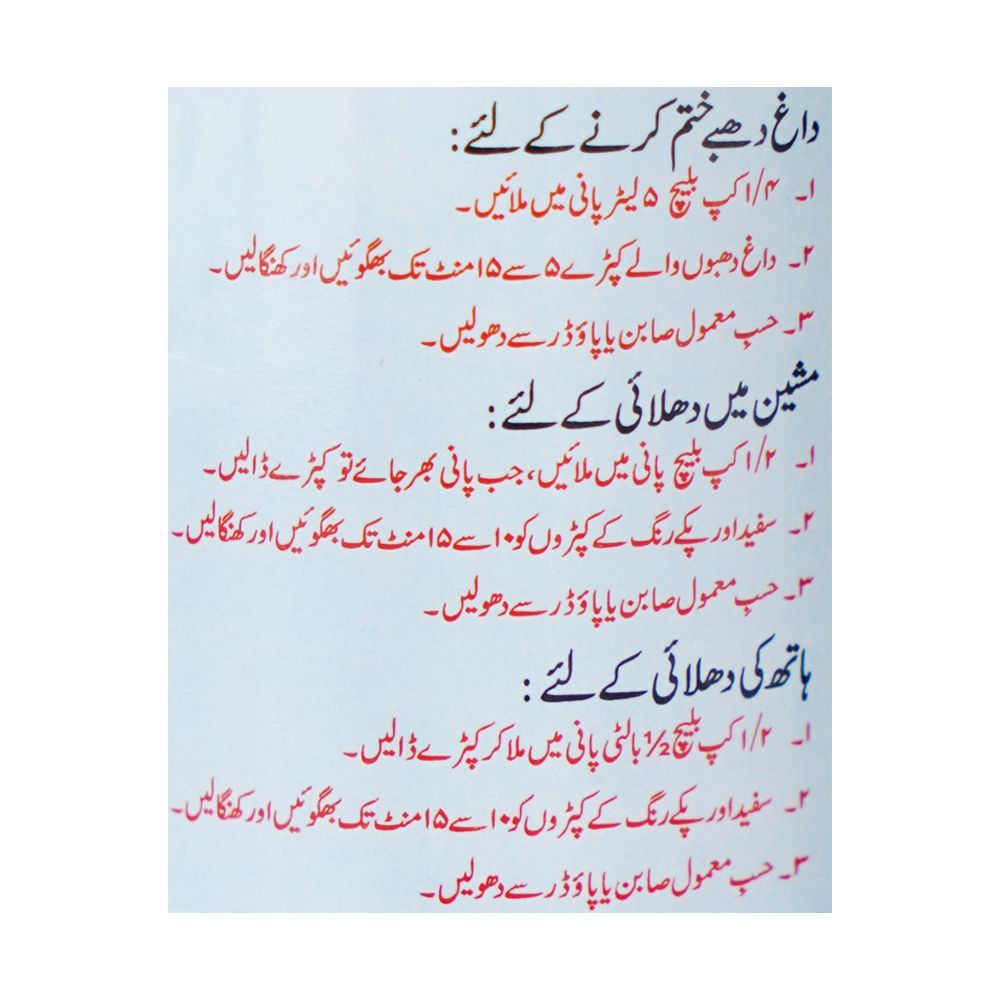 داغ دھبے ختم کرنے کے لئے:
۱۔ ۱/۴ کپ بلیچ ۵ لیٹر پانی میں ملائیں۔
۲۔ داغ دھبوں والے کپڑے ۵ سے ۱۵ منٹ تک بھگوئیں اور کھنگالیں۔
۳۔ حسبِ معمول صابن یا پاؤڈر سے دھولیں۔
مشین میں دھلائی کے لئے:
۱۔ ۱/۲ کپ بلیچ پانی میں ملائیں، جب پانی بھر جائے تو کپڑے ڈالیں۔
۲۔ سفید اور پکے رنگ کے کپڑوں کو ۱۰ سے ۱۵ منٹ تک بھگوئیں اور کھنگالیں۔
۳۔ حسبِ معمول صابن یا پاؤڈر سے دھولیں۔
ہاتھ کی دھلائی کے لئے:
۱۔ ۱/۲ کپ بلیچ ½ بالٹی پانی میں ملا کر کپڑے ڈالیں۔
۲۔ سفید اور پکے رنگ کے کپڑوں کو ۱۰ سے ۱۵ منٹ تک بھگوئیں اور کھنگالیں۔
۳۔ حسبِ معمول صابن یا پاؤڈر سے دھولیں۔